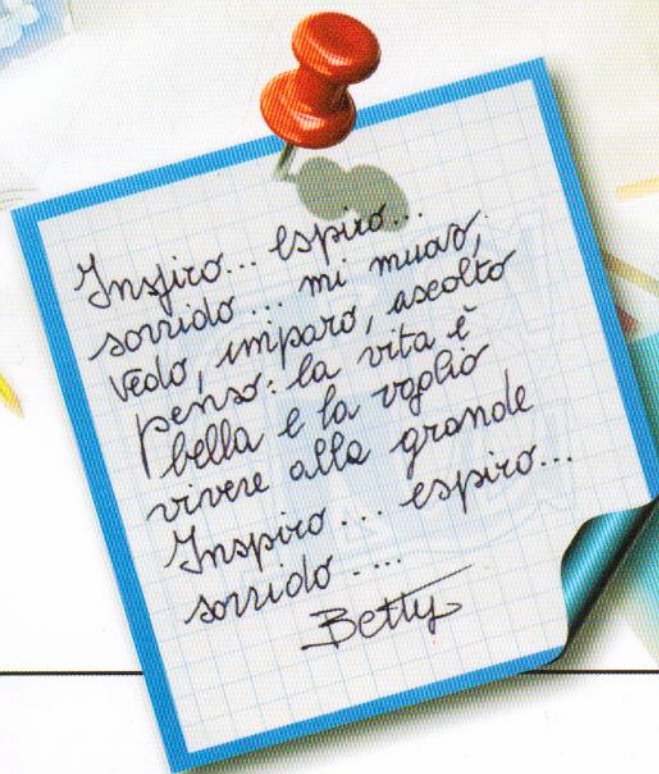 Inspiro... espiro...
sorrido... mi muovo,
vedo, imparo, ascolto
penso: la vita è
bella e la voglio
vivere alla grande
Inspiro... espiro...
sorrido....
Betty